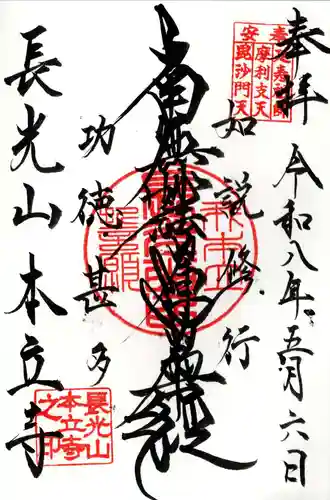 奉拝
令和八年五月六日
如説修行
南無妙法蓮華経
功徳甚多
長光山 本立寺
摩利支天
安 毘沙門天
長光山
本立寺
之印